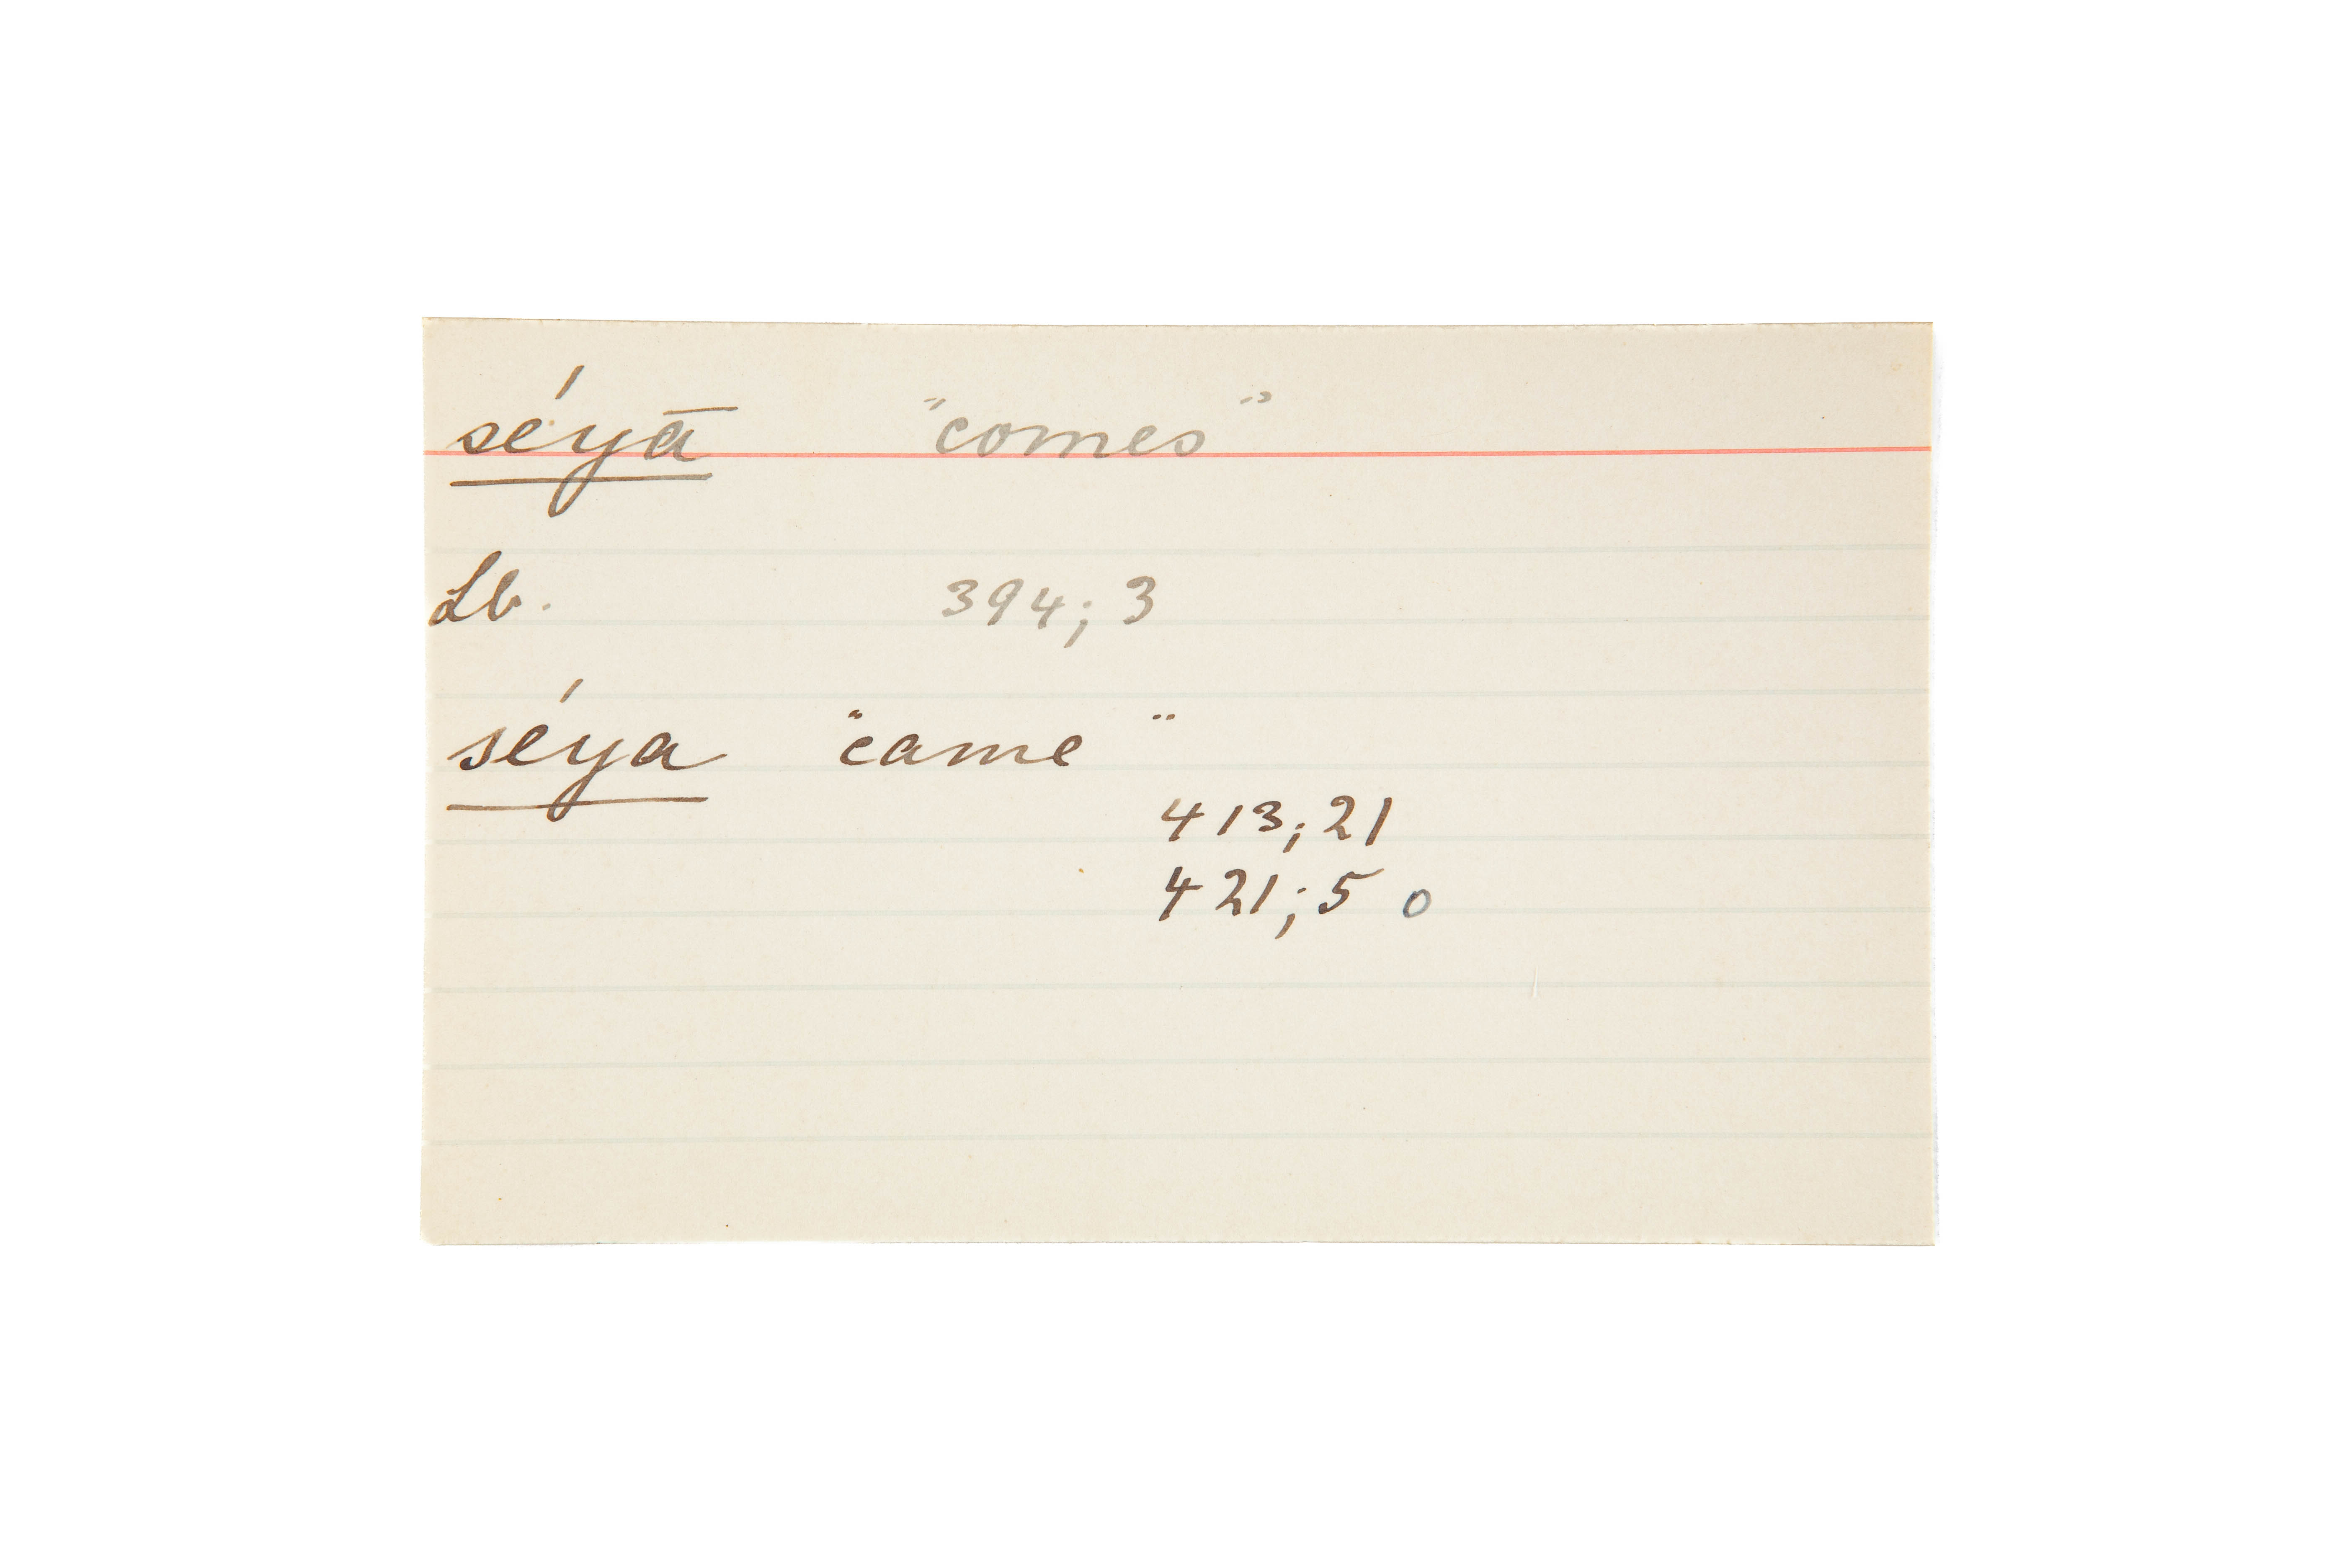 séyā "comes"
Lb. 394; 3
séya "came"
413; 21
421; 5 o